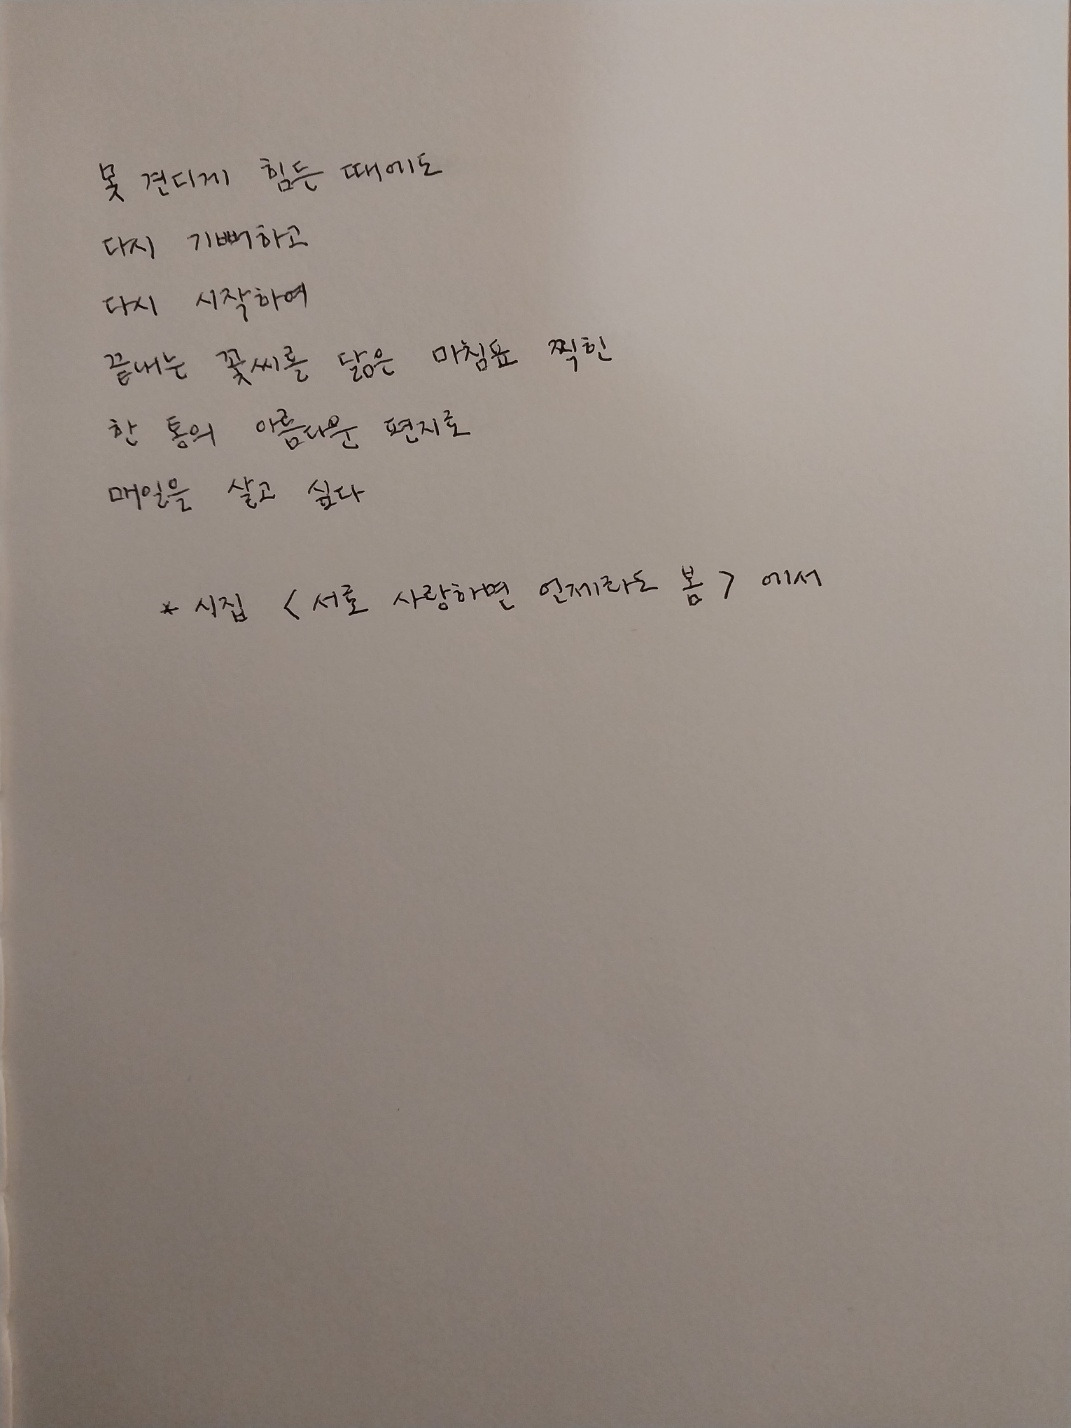 못 견디게 힘든 때에도
다시 기뻐하고
다시 시작하여
끝내는 꽃씨를 닮은 마침표 찍힌
한 통의 아름다운 편지로
매일을 살고 싶다
* 시집 <서로 사랑하면 언제라도 봄> 에서